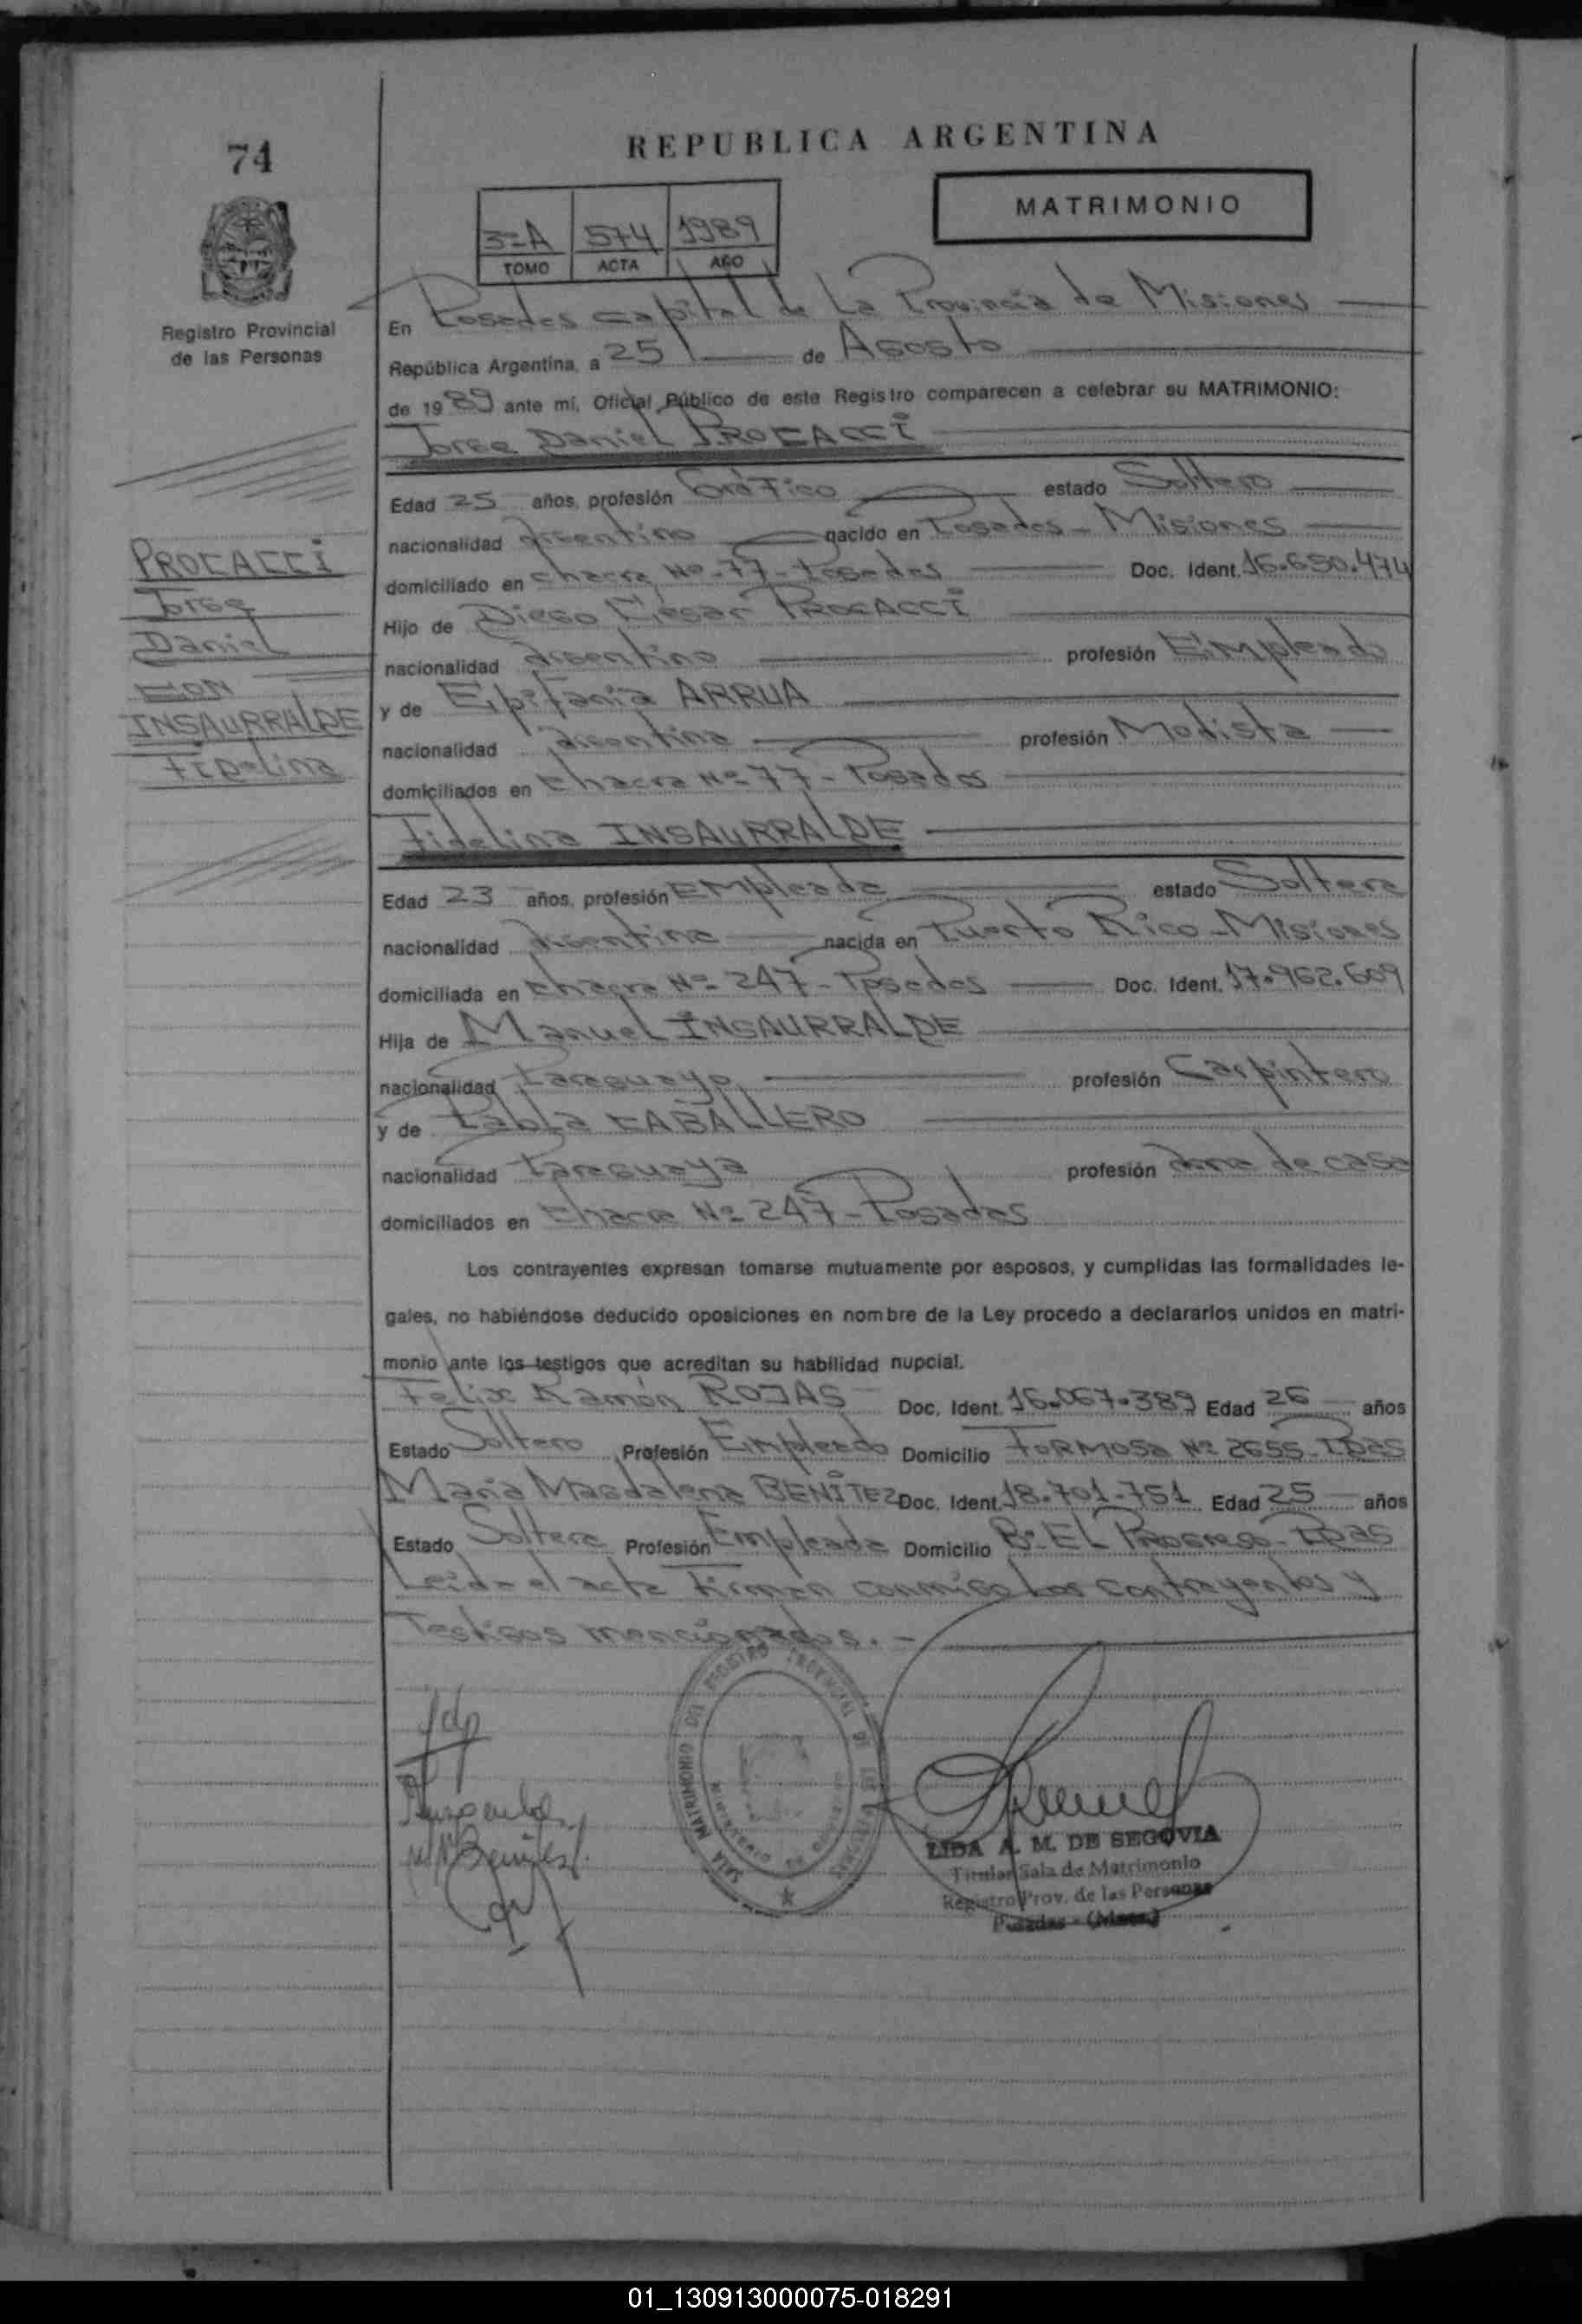 74
REPUBLICA ARGENTINA
MATRIMONIO
3º A 574 1989
TOMO ACTA AÑO
Registro Provincial
de las Personas
En Posadas capital de La Provincia de Misiones
República Argentina, a 25 de Agosto
de 1989 ante mí, Oficial Público de este Registro comparecen a celebrar su MATRIMONIO:
Jorge Daniel PROCACCI
Edad 25 años, profesión Gráfico estado Soltero
nacionalidad Argentino nacido en Posadas - Misiones
domiciliado en chacra Nº 77 - Posadas Doc. Ident. 16.650.474
Hijo de Diego César PROCACCI
nacionalidad Argentino profesión Empleado
y de Epifania ARRUA
nacionalidad Argentina profesión Modista
domiciliados en Chacra Nº 77 - Posadas
PROCACCI
Jorge
Daniel
CON
INSAURRALDE
Fidelina
Fidelina INSAURRALDE
Edad 23 años, profesión Empleada estado Soltera
nacionalidad Argentina nacida en Puerto Rico - Misiones
domiciliada en Chacra Nº 247 - Posadas Doc. Ident. 17.962.609
Hija de Manuel INSAURRALDE
nacionalidad Paraguayo profesión Carpintero
y de Pabla CABALLERO
nacionalidad Paraguaya profesión Ama de casa
domiciliados en Chacra Nº 247 - Posadas
Los contrayentes expresan tomarse mutuamente por esposos, y cumplidas las formalidades le-
gales, no habiéndose deducido oposiciones en nombre de la Ley procedo a declararlos unidos en matri-
monio ante los testigos que acreditan su habilidad nupcial.
Felix Ramón ROJAS Doc. Ident. 16.067.389 Edad 26 años
Estado Soltero Profesión Empleado Domicilio FORMOSA Nº 2655 - Pdas
Maria Magdalena BENITEZ Doc. Ident. 18.701.751 Edad 25 años
Estado Soltera Profesión Empleada Domicilio Bº EL Progreso - Pdas
Leida el acta Firman conmigo Los contrayentes y
Testigos mencionados. -
SALA MATRIMONIO DEL REGISTRO PROVINCIAL DE LAS PERSONAS
LIDA A. M. DE SEGOVIA
Titular Sala de Matrimonio
Registro Prov. de las Personas
Posadas - (Mnes.)
01_130913000075-018291